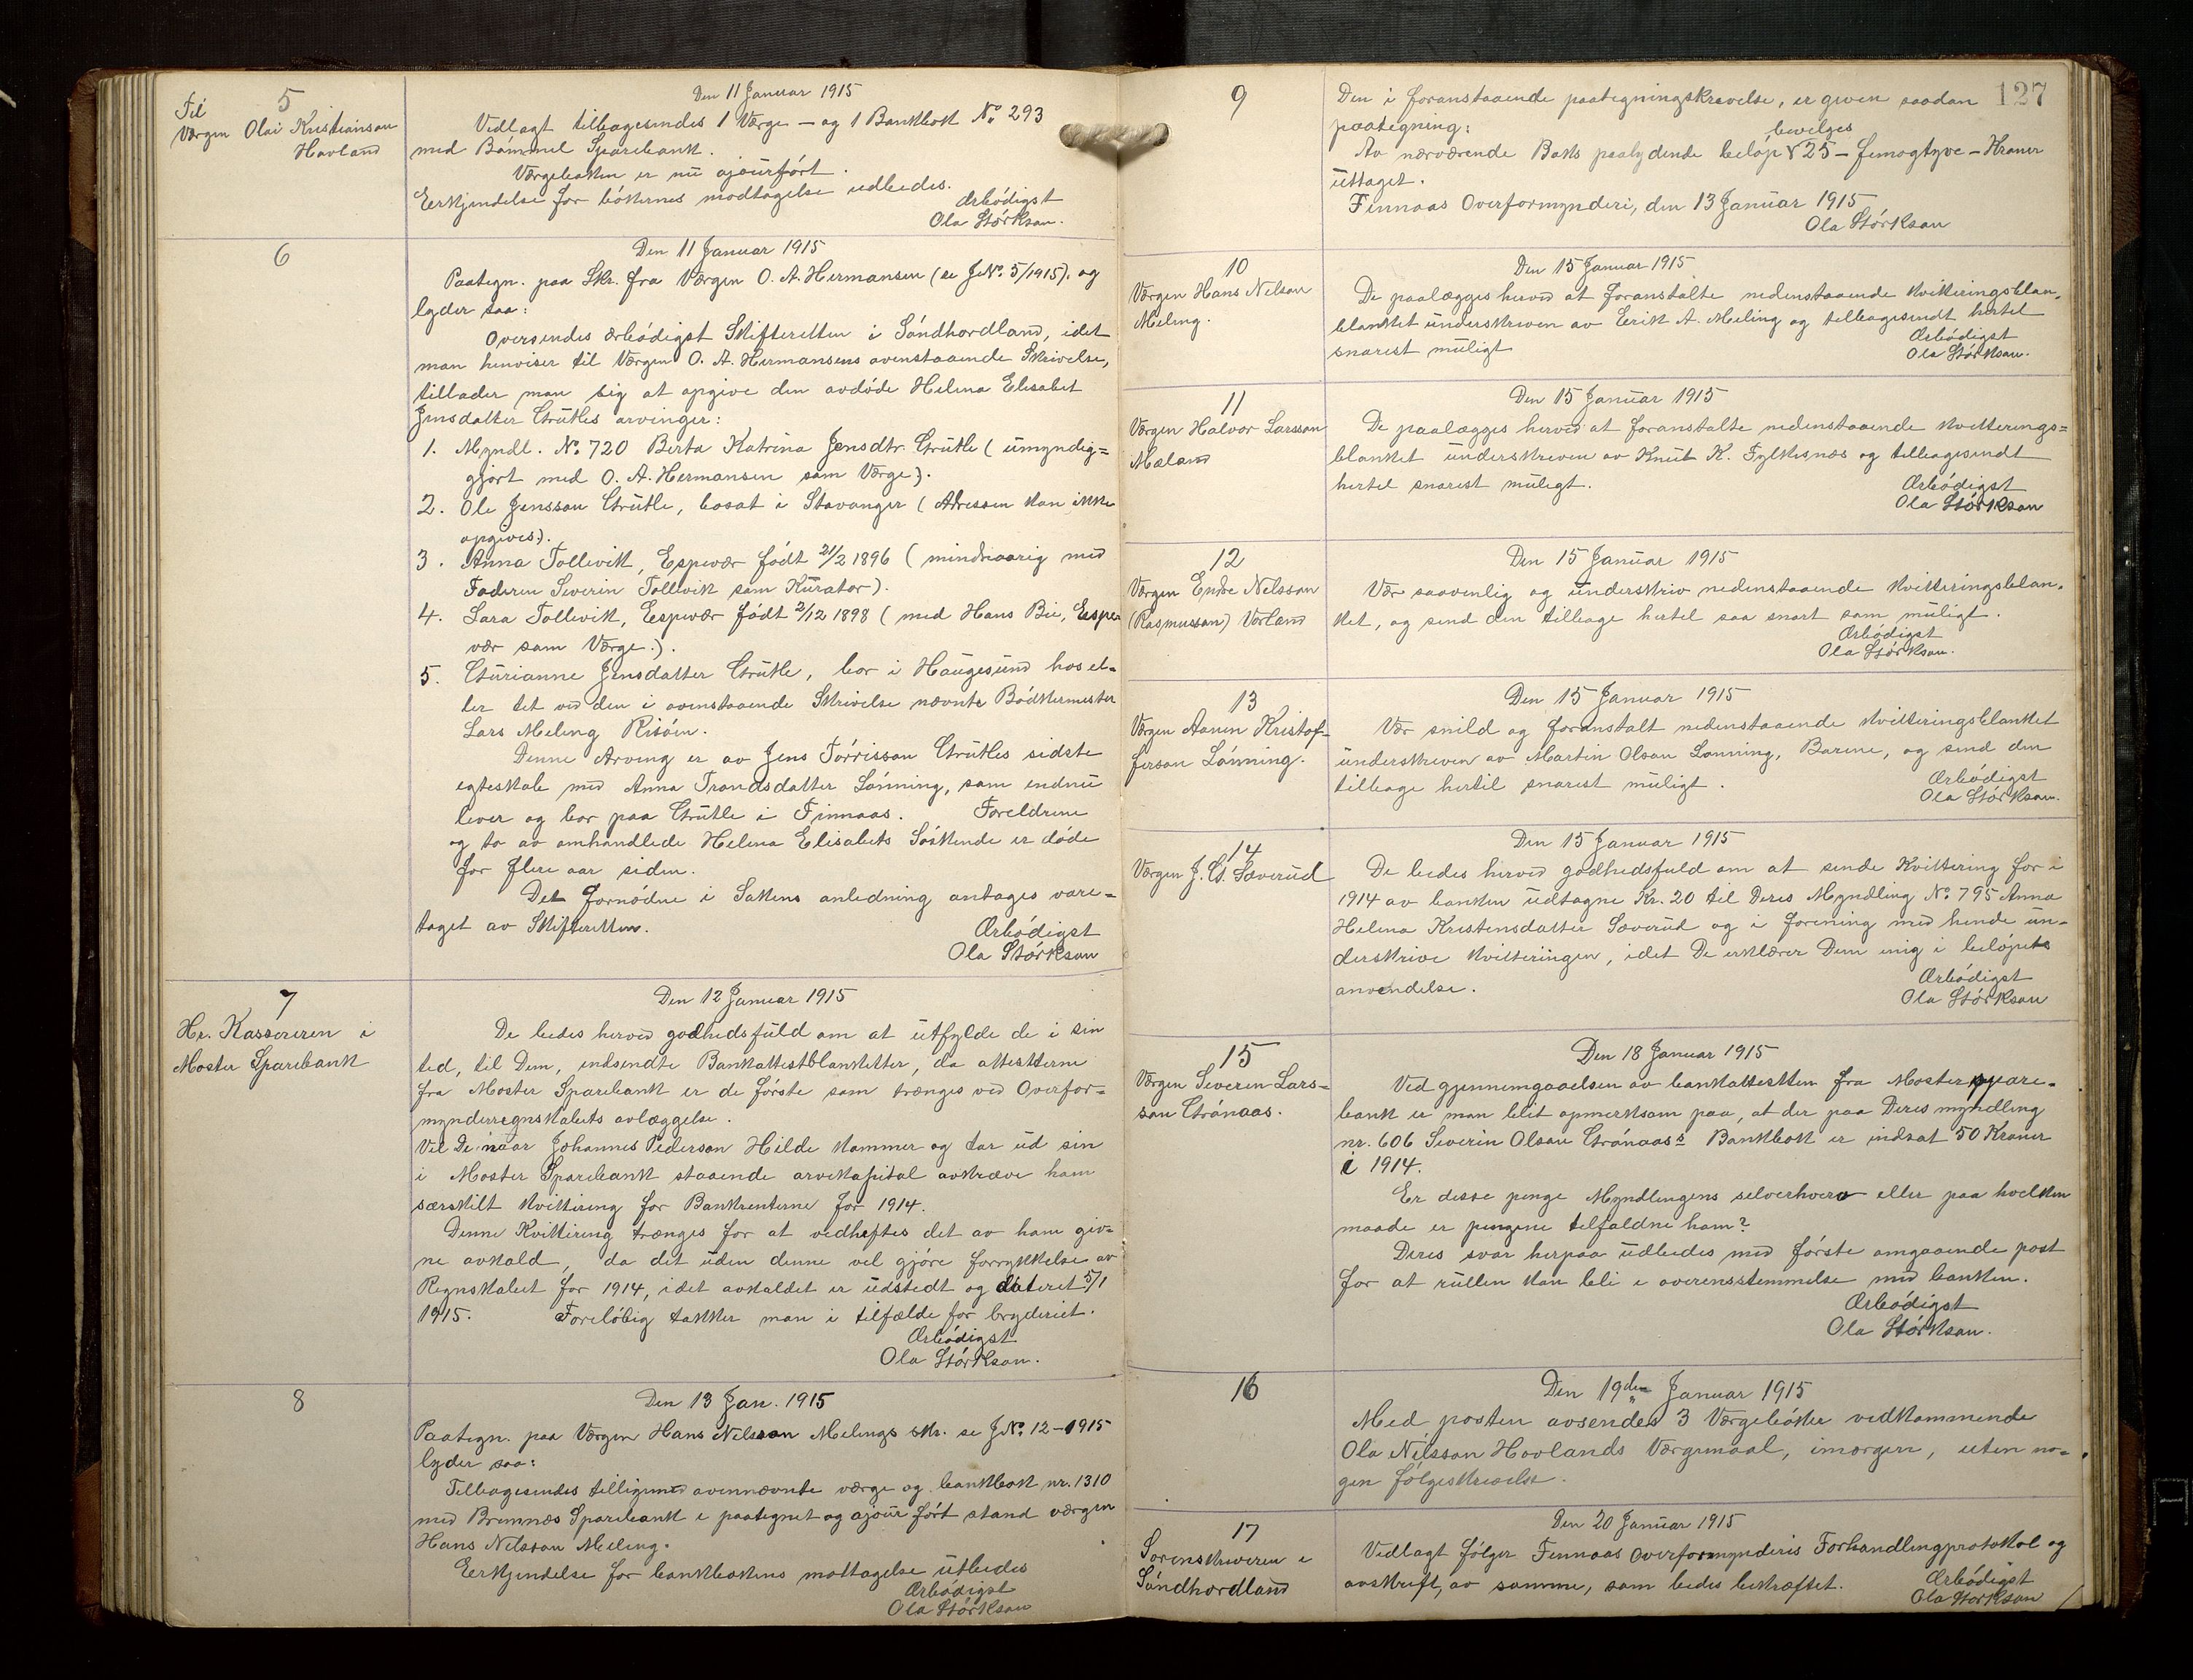 5
Til
Værgen Olai Kristianson
Havland
Den 11 Januar 1915
Vedlagt tilbagesendes 1 Værge – og 1 Bankbok No. 293
med Bömmel Sparebank.
Værgeboken er nu ajourfört.
Eerkjendelse for bökernes modtagelse udbedes.
Ærbödigst
Ola Störkson.
6
Den 11 Januar 1915
Paategn. paa Skr. fra Værgen O. A. Hermansen (se J.No. 5/1915). og
lyder saa:
Oversendes ærbödigst Skifteretten i Söndhordland, idet
man henviser til Værgen O. A. Hermansens ovenstaaende Skrivelse,
tillader man sig at opgive den avdöde Helena Elisabet
Jensdatter Grutles arvinger:
1. Myndl. No. 720 Berta Katrina Jensdtr. Grutle (umyndig=
gjort med O. A. Hermansen som Værge).
2. Ole Jensson Grutle, bosat i Stavanger (Adressen kan ikke
opgives).
3. Anna Tollevik, Espevær födt 21/2 1896 (mindreaarig med
Faderen Severin Tollevik som Kurator).
4. Lara Tollevik, Eespevær födt 2/12 1898 (med Hans Bie, Eespe
vær som Værge.).
5. Gurianne Jensdatter Grutle, bor i Haugesund hos el=
ler tet ved den i ovenstaaende Skrivelse nævnte Bödkermester
Lars Meling Risöen.
Denne Arving er av Jens Törrisson Grutles sidste
egteskab med Anna Trondsdatter Lönning, som endnu
lever og bor paa Grutle i Finnaas. Foreldrene
og to av omhandlede Helena Elisabets Söskende er döde
for flere aar siden.
Det fornödne i Sakens anledning antages vare=
taget av Skifteretten.
Ærbödigst
Ola Störkson
7
Hr. Kassereren i
Moster Sparebank
Den 12 Januar 1915
De bedes herved godhedsfuld om at utfylde de i sin
ted, til Dem, indsendte Bankattestblanketter, da attesterne
fra Moster Sparebank er de förste som trænges ved Overfor=
mynderregnskabets avlæggelse.
Vil De naar Johannes Pederson Hilde kommer og tar ud sin
i Moster Sparebank staaende arvekapital avkræve ham
særskilt Kvittering for Bankrenterne for 1914.
Denne Kvittering trænges for at vedheftes det av ham giv=
ne avkald, da det uden denne vel gjöre forrykkelse av
Regnskabet for 1914, idet avkaldet er udstedt og dateret 5/1
1915. Forelöbig takker man i tilfælde for bryderiet.
Ærbödigst
Ola Störkson.
8
Den 13 Jan. 1915
Paategn. paa Værgen Hans Nelsson Melings skr. se J.No. 12-1915
lyder saa:
Tilbagesendes tilligemed ovennævnte værge og bankbok nr. 1310
med Bremnæs Sparebank i paategnet og ajour fört stand værgen
Hans Nelsson Meling.
Eerkjendelse for bankbokens mottagelse utbedes
Ærbödigst
Ola Störkson
127
9
Den i foranstaaende paategningskrevelse, er given saadan
paategning:
bevilges
Av nærværende Boks paalydende belöp √ 25 – femogtyve – Kroner
uttaget.
Finnaas Overformynderi, den 13 Januar 1915
Ola Störkson
10
Værgen Hans Nelson
Meling.
Den 15 Januar 1915
De paalægges herved at foranstalte nedenstaaende kvitteringsblan,
blanket underskreven av Eerik A. Meling og tilbagesendt hertel
snarest muligt
Ærbödigst
Ola Störkson.
11
Værgen Halvor Larsson
Mæland
Den 15 Januar 1915
De paalægges herved at foranstalte nedenstaaende kvitterings=
blanket underskreven av Knut K. Fylkesnæs og tilbagesendt
hertel snarest muligt.
Ærbödigst
Ola Störkson
12
Værgen Endre Nelsson
(Rasmusson) Vorland
Den 15 Januar 1915
Vær saavenlig og underskriv nedenstaaende kvitteringsblan,
ket, og send den tilbage hertel saa snart som muligt.
Ærbödigst
Ola Störkson.
13
Værgen Aanen Kristof-
ferson Lönning.
Den 15 Januar 1915
Vær snild og foranstalt nedenstaaende kvitteringsblanket
underskreven av Martin Olson Lonning, Barene, og send den
tilbage hertil snarest muligt.
Ærbödigst
Ola Störkson.
14
Værgen J. G. Sæverud
Den 15 Januar 1915
De bedes herved godhedsfuld om at sende Kvittering for i
1914 av banken udtagne Kr. 20 til Deres Myndling No. 795 Anna
Helena Kristensdatter Sæverud og i forening med hende un-
derskrive kvitteringen, idet De erklærer Dem enig i belöpets
anvendelse.
Ærbödigst
Ola Störkson
15
Værgen Severin Lars=
son Grönaas.
Den 18 Januar 1915
Ved gjennemgaaelsen av bankattesten fra Moster spare=
bank er man blit opmerksom paa, at der paa Deres myndling
nr. 606 Severin Olson Grönaas's Bankbok er indsat 50 Kroner
i 1914.
Er disse penge Myndlingens selverhverv eller paa hvelken
maade er pengene tilfaldne ham?
Deres svar herpaa udbedes med förste omgaaende post
for at rullen kan bli i overensstemmelse med banken.
Ærbödigst
Ola Störkson.
16
Den 19den Januar 1915
Med posten avsendes 3 Værgeböker vedkommende
Ola Nelsson Hovlands Værgemaal, imorgen, uten no=
gen fölgeskrivelse.
17
Sorenskriveren i
Söndhordland
Den 20 Januar 1915
Vedlagt fölger Finnaas Overformynderis Forhandlingprotokol og
avskrift, av samme, som bedes bekræftet.
Ærbödigst
Ola Störkson